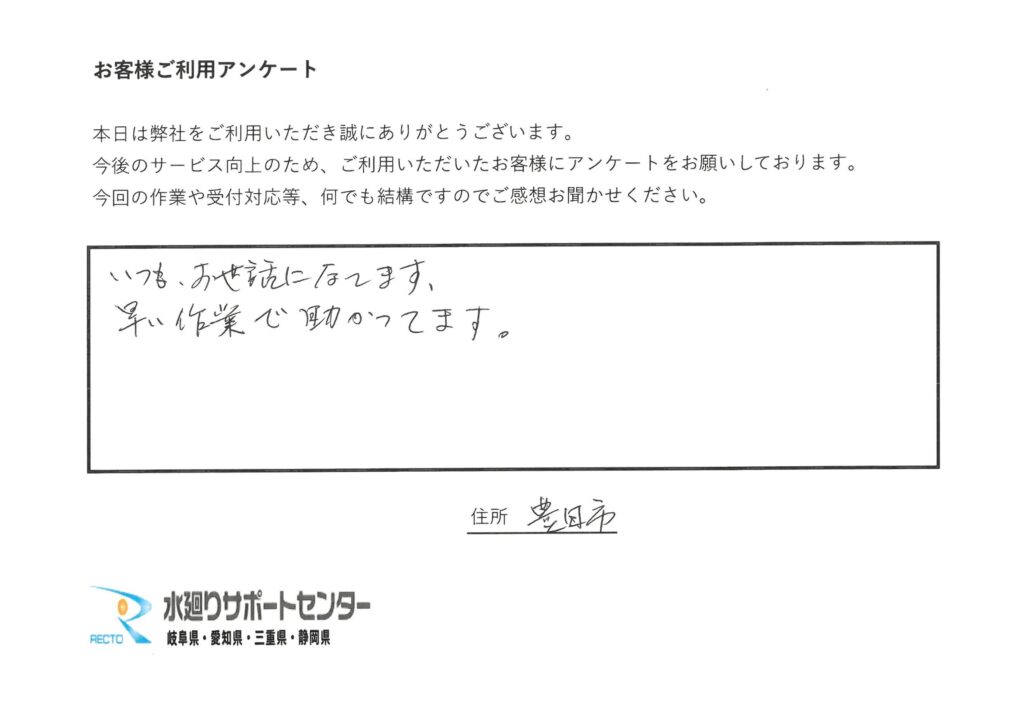 お客様ご利用アンケート
本日は弊社をご利用いただき誠にありがとうございます。
今後のサービス向上のため、ご利用いただいたお客様にアンケートをお願いしております。
今回の作業や受付対応等、何でも結構ですのでご感想お聞かせください。
いつも、お世話になてます、
早い作業で助かってます。
住所 豊田市
RECTO
水廻りサポートセンター
岐阜県・愛知県・三重県・静岡県